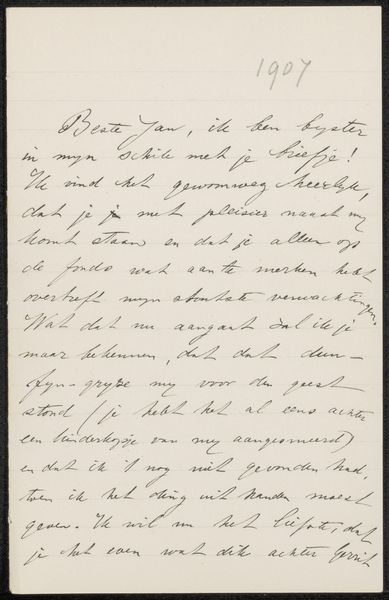 1907
Beste Jan, ik ben byster
in myn schik met je briefje!
Ik vind het gewoonweg heerlyk,
dat je met pleisier naast my
komt staan en dat je alleen op
de fondo wat aan te merken hebt
overtreft myn stoutste verwachtingen.
Wat dat nu aangaat zal ik je
maar bekennen, dat dat dun-
fyn-gryze my voor den geest
stond (je hebt het al eens achter
een kinderkopje van my aangesmeerd)
en dat ik 't nog niet gevonden had,
toen ik het ding uit handen moest
geven. Ik wil nu het liefste, dat
je het even wat dik achter Gerrit